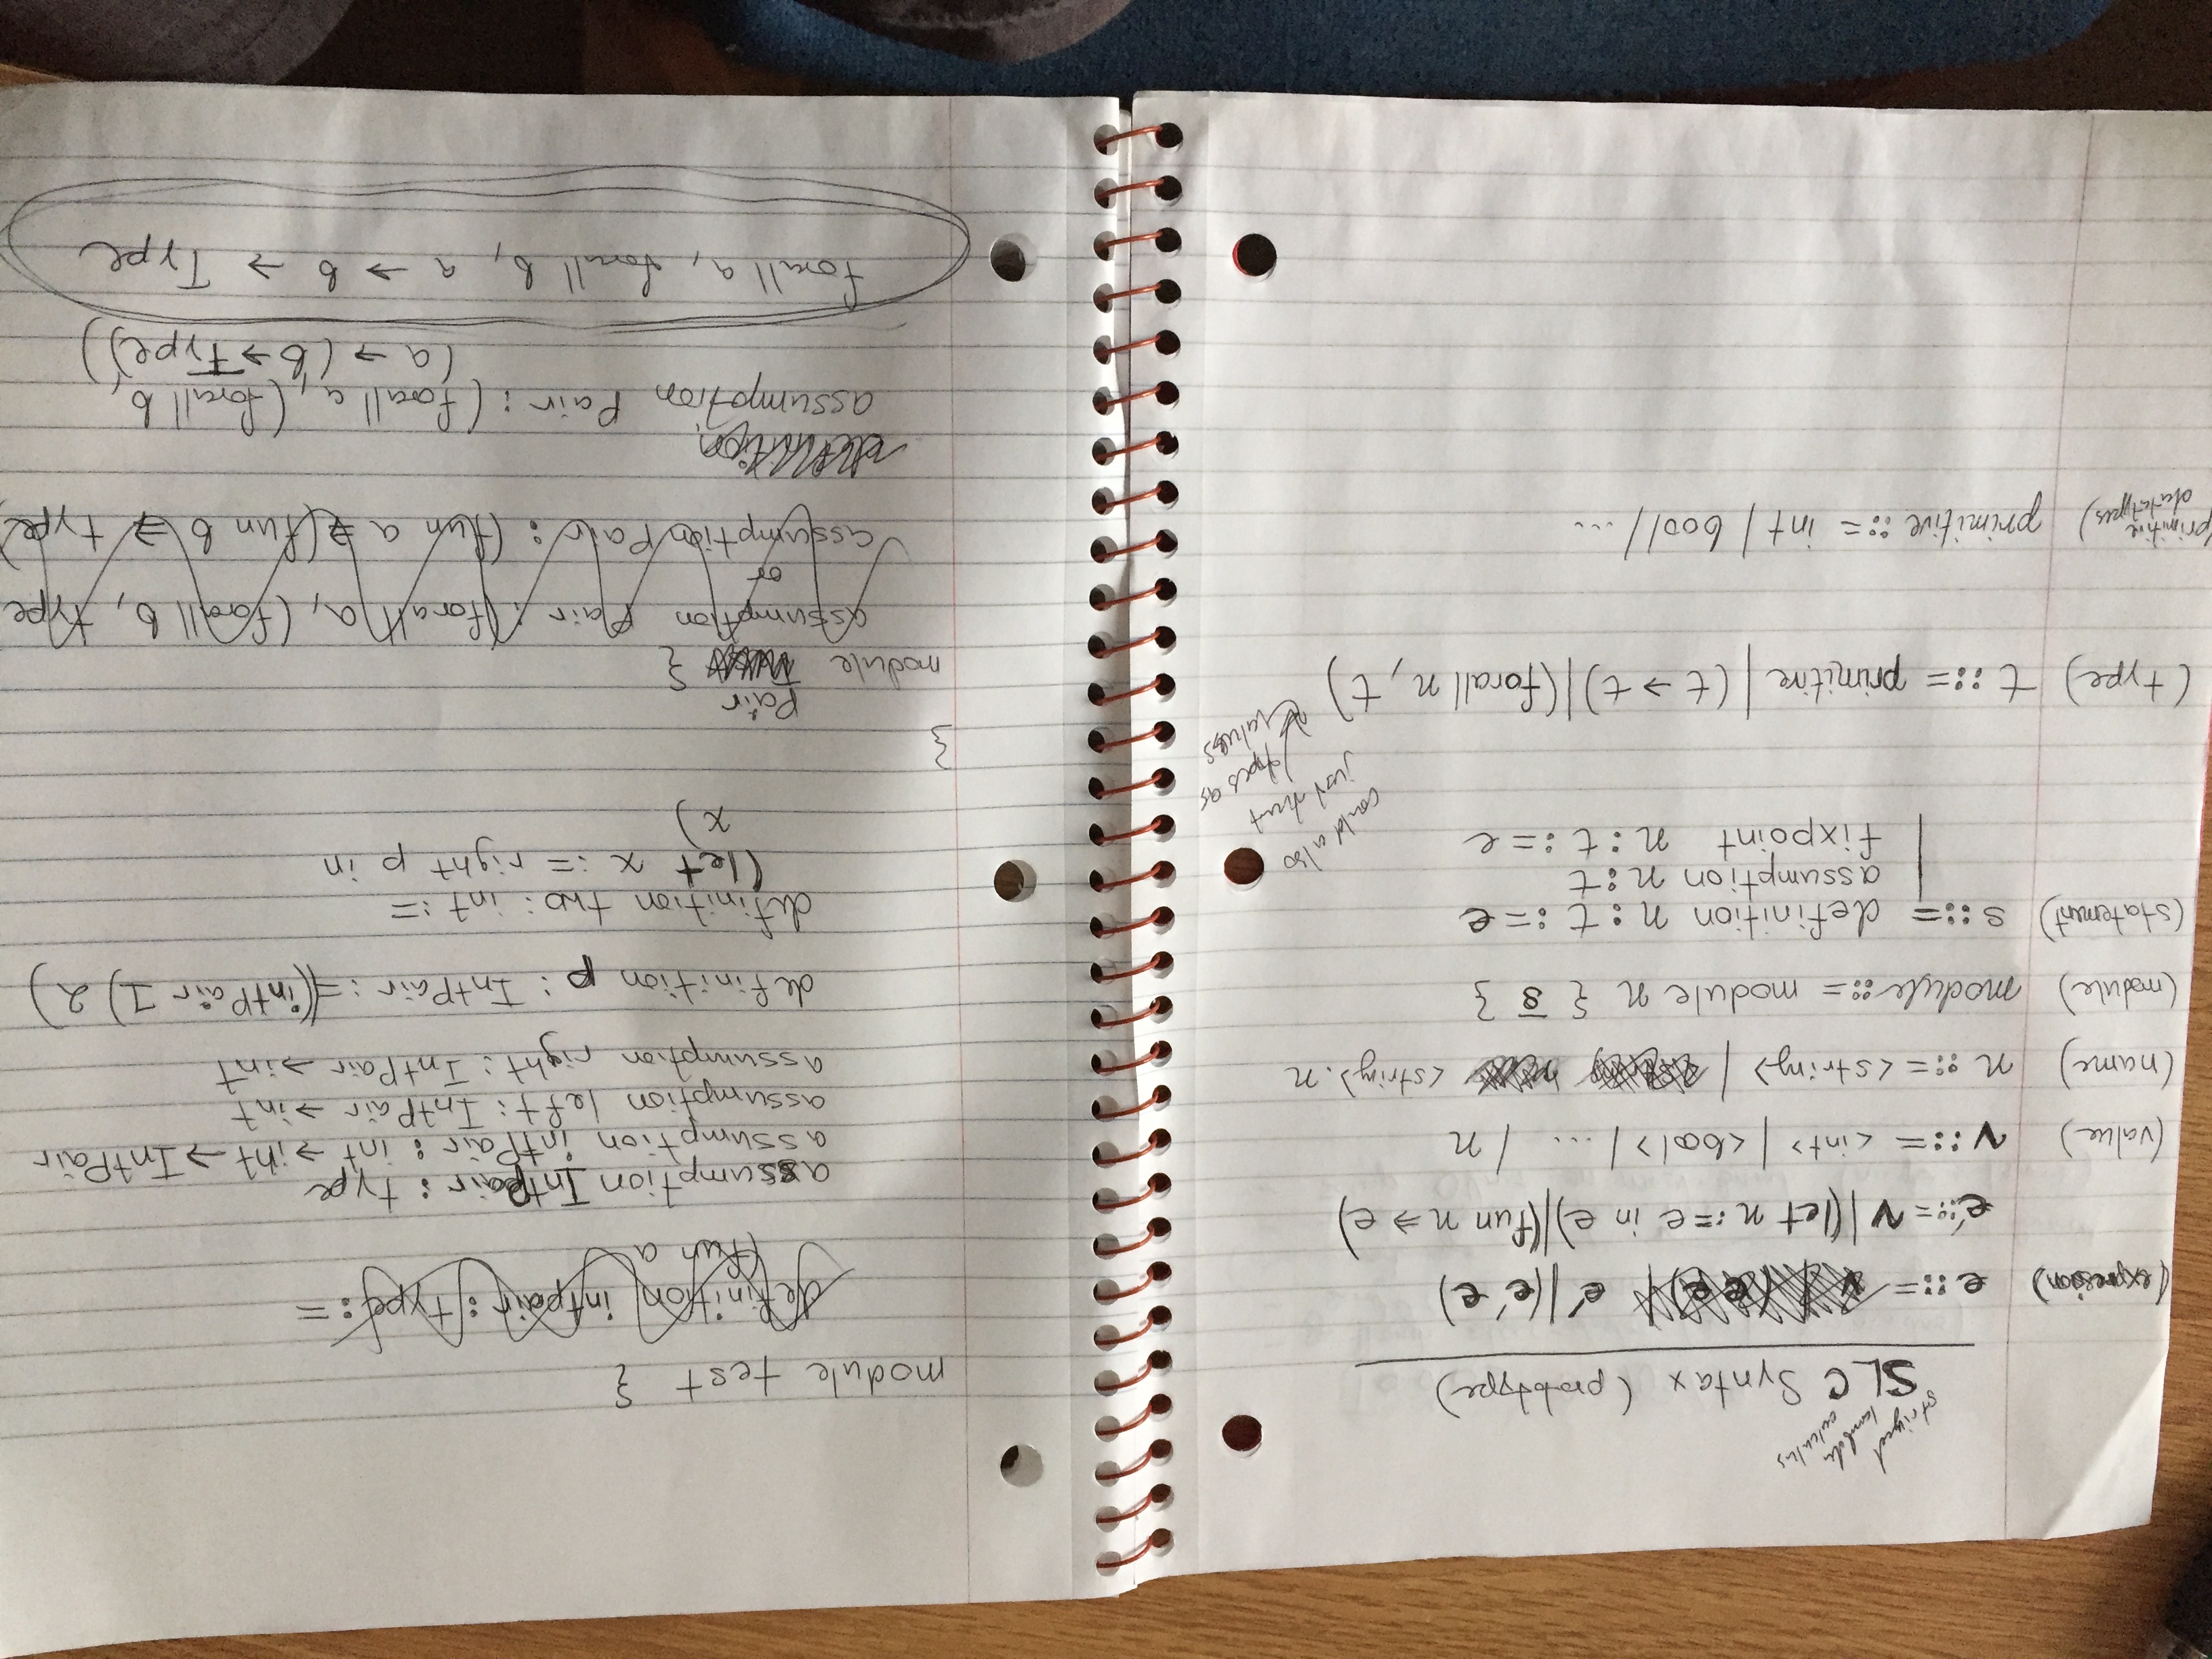 lambda
calculus
SLC Syntax (prototype)
(expression) e ::= e′ | (e′ e)
e′ ::= v | (let n := e in e) | (fun n ⇒ e)
(value) v ::= <int> | <bool> | ... | n
(name) n ::= <string> | <string>.n
(module) module ::= module n { s̅ }
(statement) s ::= definition n : t := e
| assumption n : t
fixpoint n : t := e
could also
just
types as
values
(type) t ::= primitive | (t → t) | (forall n, t)
(primitive
datatypes) primitive ::= int | bool | ...
module test {
definition intpair : type :=
(fun a
assumption IntPair : type
assumption intPair : int → int → IntPair
assumption left : IntPair → int
assumption right : IntPair → int
definition p : IntPair := ((intPair 1) 2)
definition two : int :=
(let x := right p in
x)
}
Pair
module {
assumption Pair : (forall a, (forall b, type
or
assumption Pair : (fun a ⇒ (fun b ⇒ type)
definition
assumption Pair : (forall a, (forall b,
(a → (b → Type))
forall a, forall b, a → b → Type